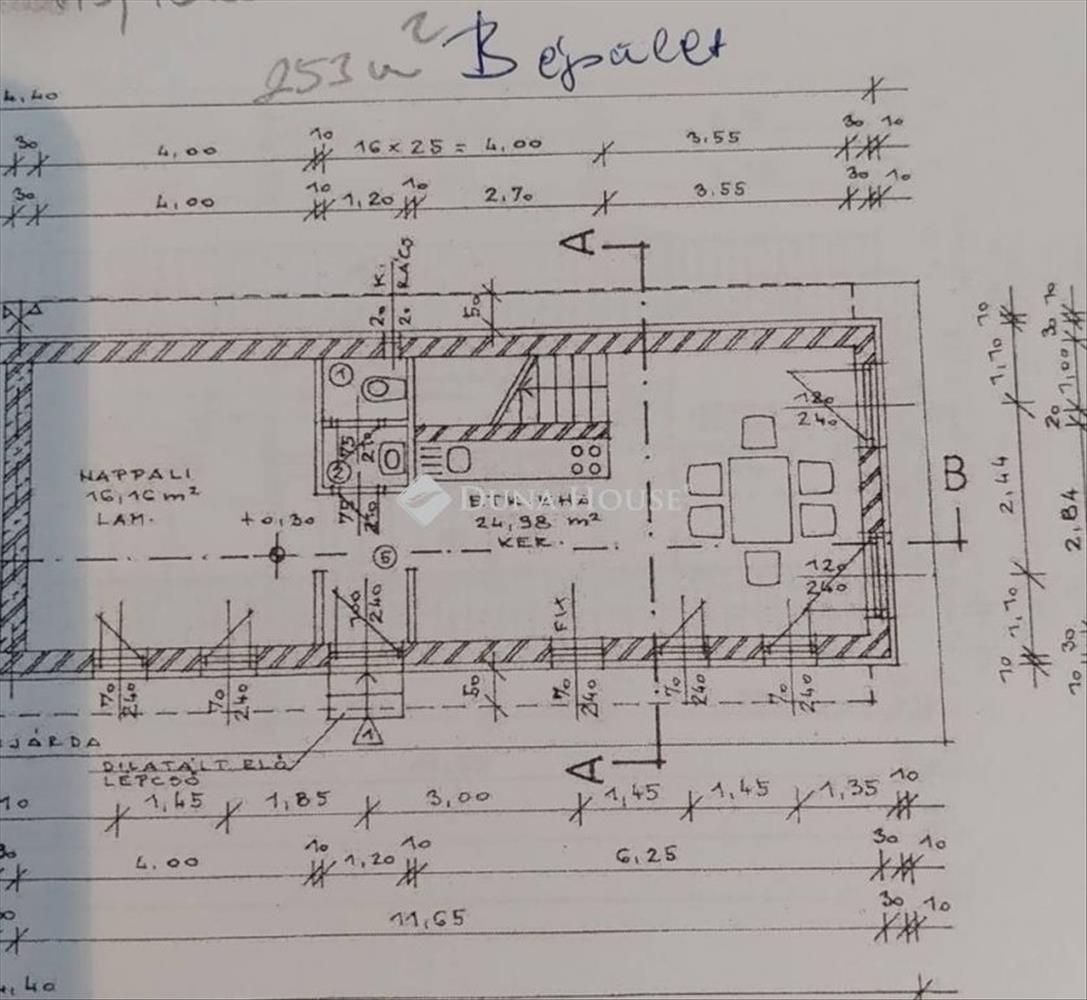 253 m² B épület
4,40
30 4,00 10 16 x 25 = 4,00 3,55 30 10
30 4,00 10 1,20 10 2,70 3,55 30 10
A
K. RÁCS
20 20
50
1
180
240
75
210
2
75
210
NAPPALI
16,16 m²
LAM.
+0,30
DUNA HOUSE
24,98 m²
KER.
5
B
120
240
100
240
FIX
70
240
70
240
50
70
240
70
240
70
240
1
JÁRDA
DILATÁLT ELŐ
LÉPCSŐ
A
10 1,45 1,85 3,00 1,45 1,45 1,35 10
30 4,00 10 1,20 10 6,25 30 10
11,65 30 10
4,40
10 1,10 2,44 1,10 10
30 10 1,00 20 2,84 30 10